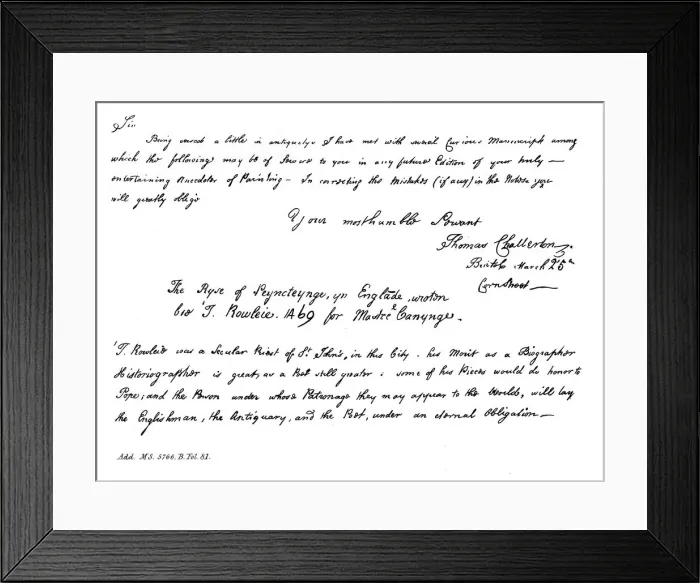 Sir
Being versed a little in antiquitys I have met with several Curious Manuscripts among
which the following may be of Service to you in any future Edition of your truly —
entertaining Anecdotes of Painting — In correcting the Mistakes (if any) in the Notes you
will greatly oblige
Your most humble Servant
Thomas Chatterton
Bristol March 25th
Corn Street —
The Ryse of Peyncteynge, yn Englãde, wroten
bie T. Rowleie. 1469 for Mastre Canynge.
'T. Rowleie was a Secular Priest of St. John's, in this City. his Merit as a Biographer
Historiographer is great, as a Poet still greater: some of his Pieces would do honor to
Pope; and the Person under whose Patronage they may appear to the World, will lay
the Englishman, the Antiquary, and the Poet, under an eternal Obligation —
Add. MS. 5766. B. Fol. 81.